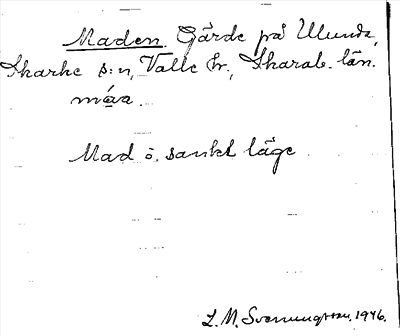 Maden. Gärde på Ulunda,
Skarke s:n, Valle hr., Skarab. län.
Mad o. sankt läge
L. M. Svenungsson. 1946.